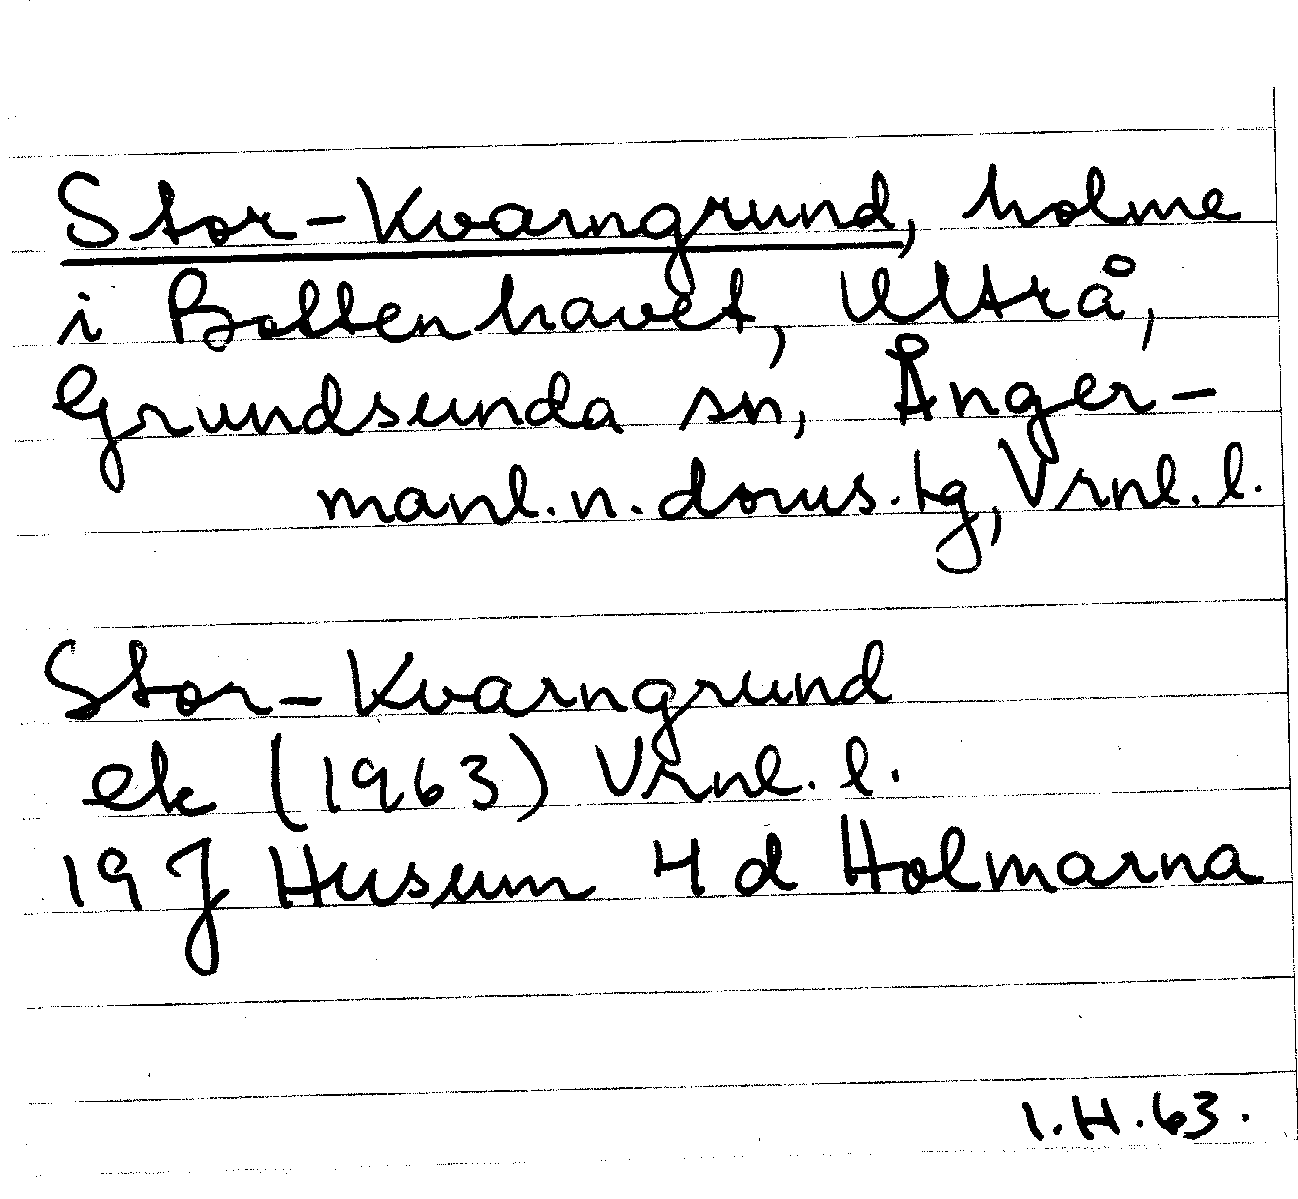 Stor-Kvarngrund, holme
i Bottenhavet, Ultrå,
Grundsunda sn, Ånger-
manl. n. doms. tg, Vrnl. l.
Stor-Kvarngrund
ek (1963) Vrnl. l.
19 J Husum 4 d Holmarna
I.H.63.